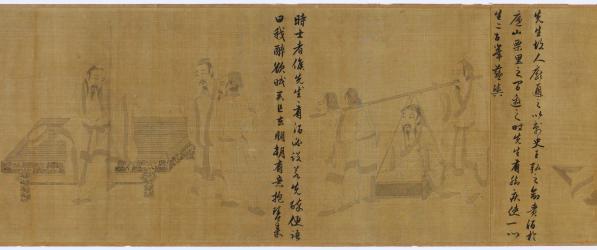 先生故人龐通之以刺史王弘之命賫酒於
廬山栗里之間邀之時先生有脚疾使一門
生二兒舁籃輿
時士者候先生有酒必設若先醉便語
曰我醉欲眠君且去明朝有意抱琴來